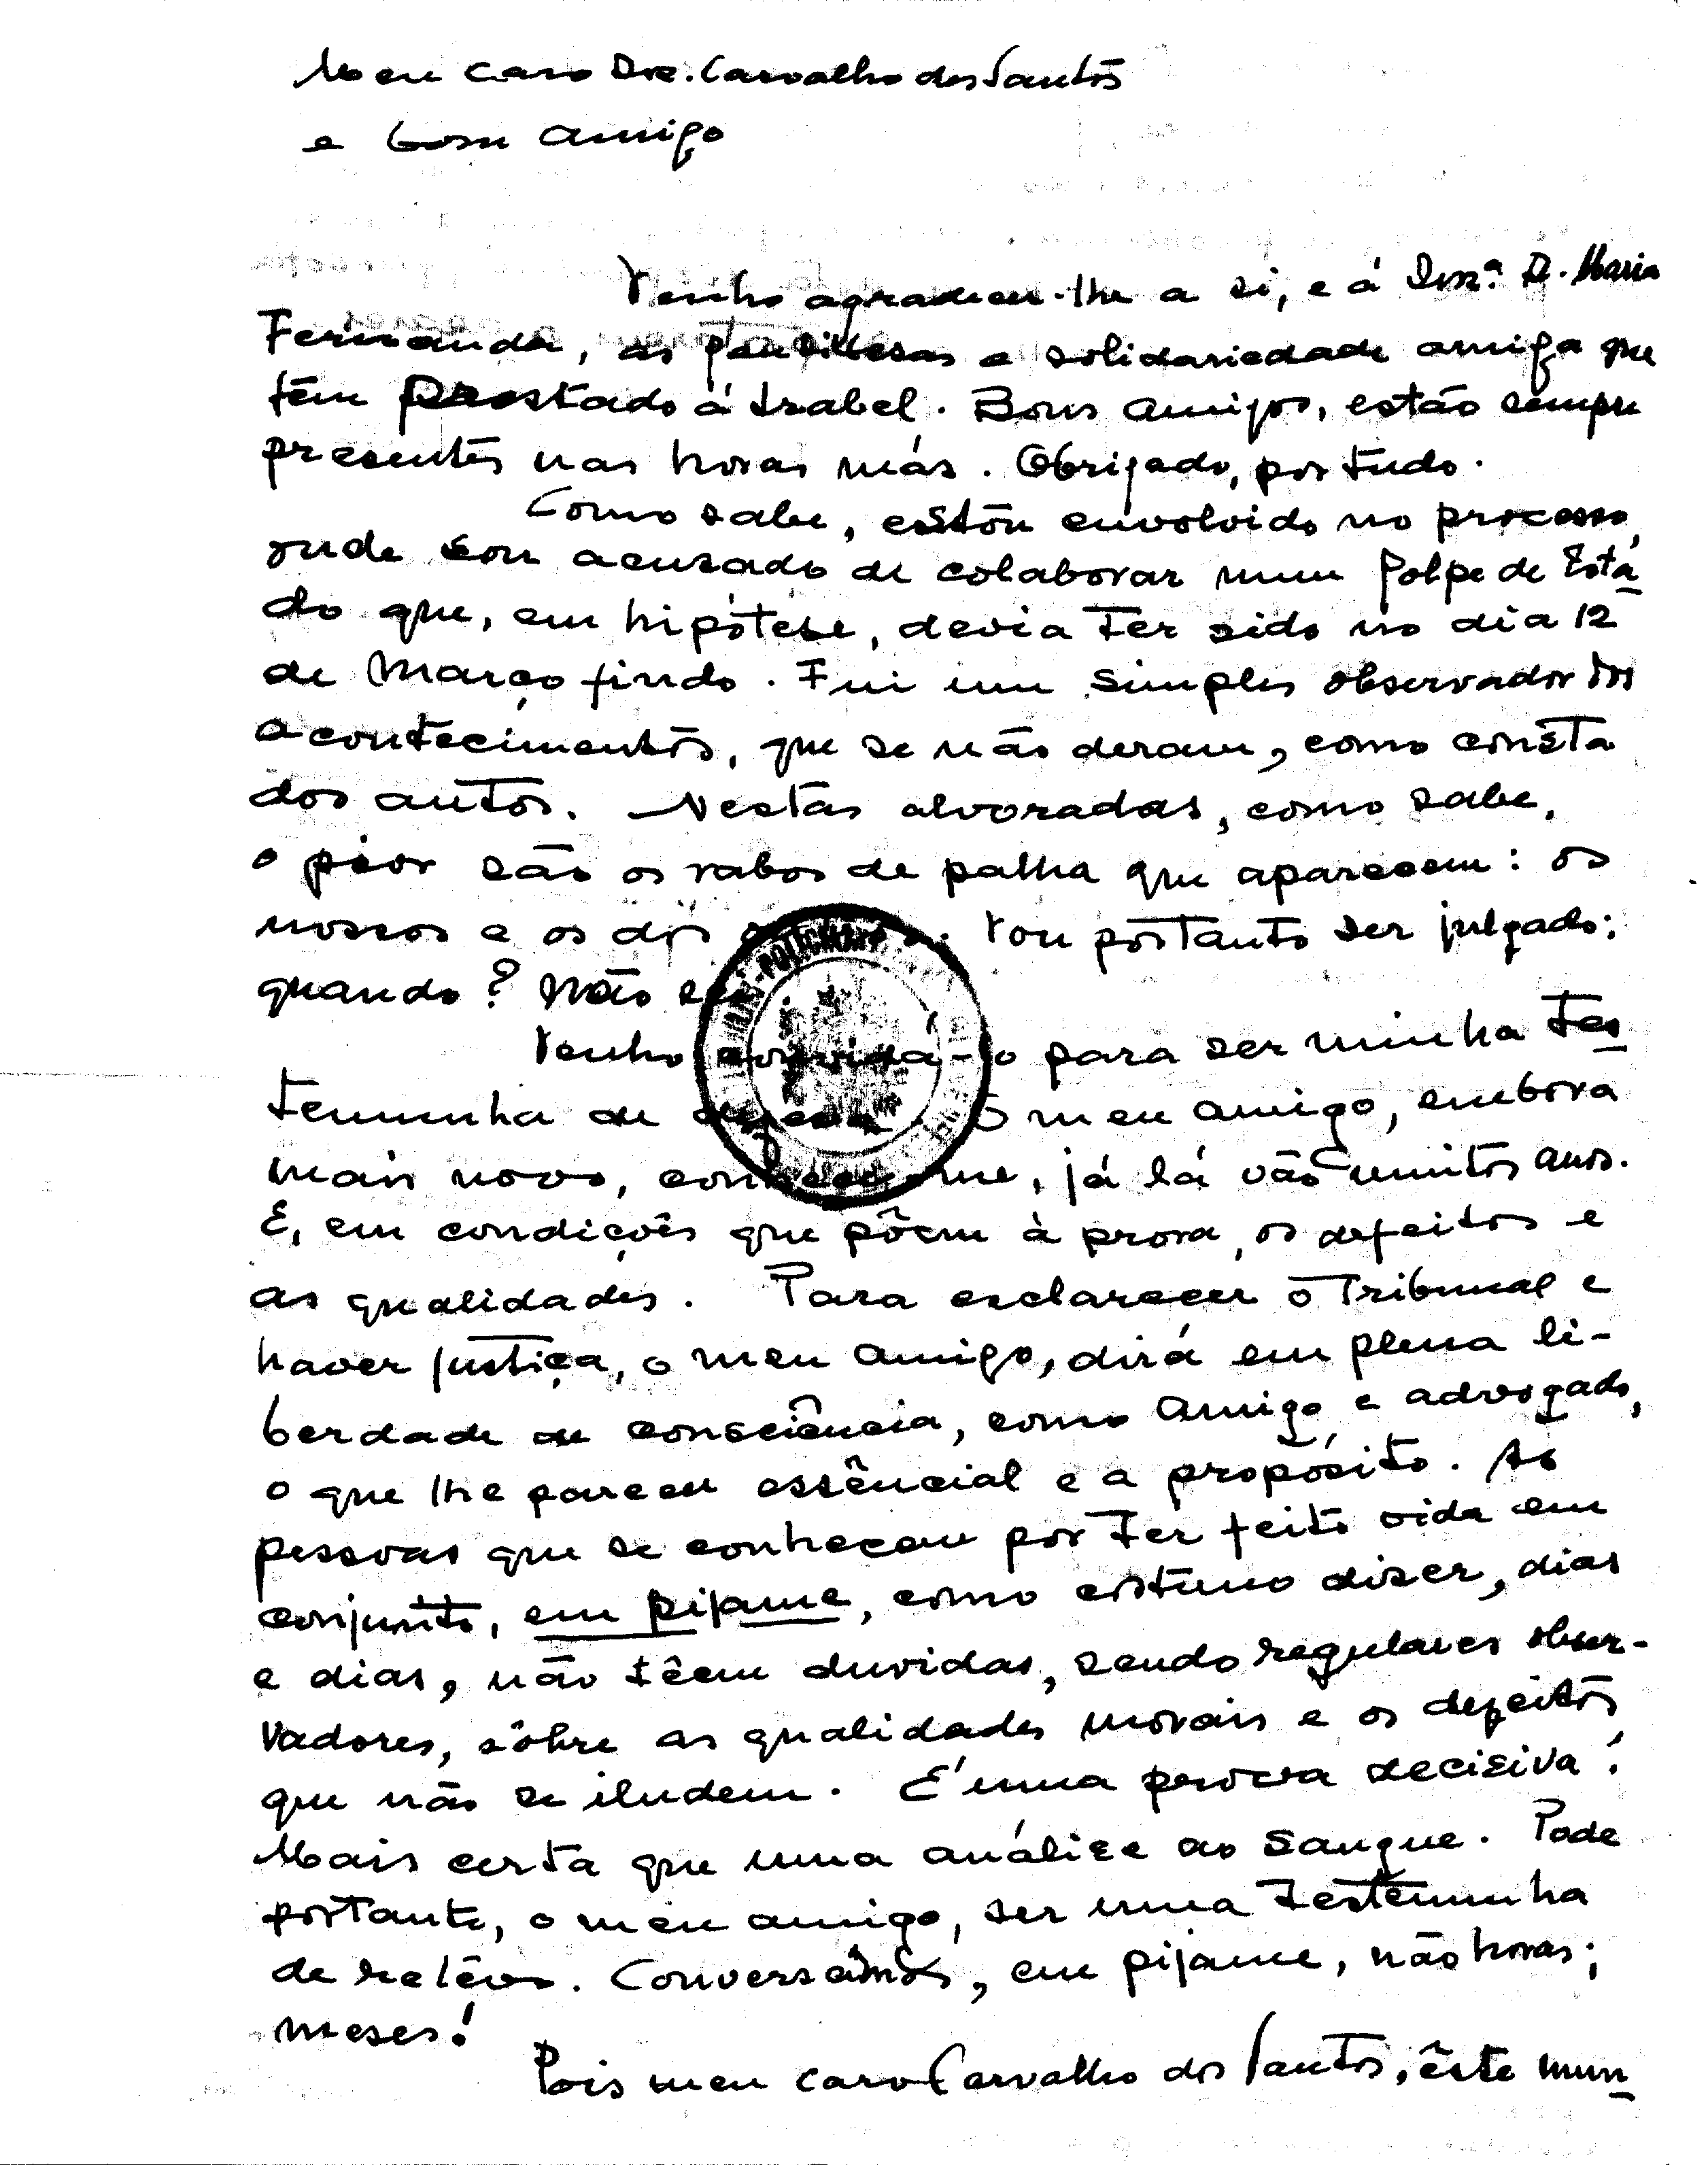 Meu caro Dr. Carvalho dos Santos
e bom amigo
Venho agradecer-lhe a si, e á Snr.ª D. Maria
Fernanda, as gentilesas e solidariedade amiga que
têm prestado á Isabel. Bons amigos, estão sempre
presentes nas horas más. Obrigado, por tudo.
Como sabe, estôu envolvido no processo,
onde sou acusado de colaborar num golpe de Está
do que, em hipótese, devia ter sido no dia 12
de Março findo. Fui um simples observador dos
acontecimentos, que se não deram, como consta
dos autos. Nestas alvoradas, como sabe,
o piór são os rabos de palha que aparecem: os
nossos e os dos Vou portanto ser julgado;
quando? Não sei
Venho convidá-lo para ser minha tes
temunha de defesa. O meu amigo, embora
mais novo, conhece-me, já lá vão muitos anos.
E, em condições que põem à prova, os defeitos e
as qualidades. Para esclarecer o Tribunal e
haver justiça, o meu amigo, dirá em plena li-
berdade de consciência, como amigo e advogado,
o que lhe parecer essêncial e a propósito. As
pessoas que se conhecem por ter feito vida em
conjunto, em pijame, como costumo dizer, dias
e dias, não têem duvidas, sendo regulares obser-
vadores, sôbre as qualidades morais e os defeitos
que não se iludem. É uma prova decisiva!
Mais certa que uma análise ao sangue. Pode
portanto, o meu amigo, ser uma testemunha
de relêvo. Conversámos, em pijame, não horas;
meses!
Pois meu caro Carvalho dos Santos, êste mun